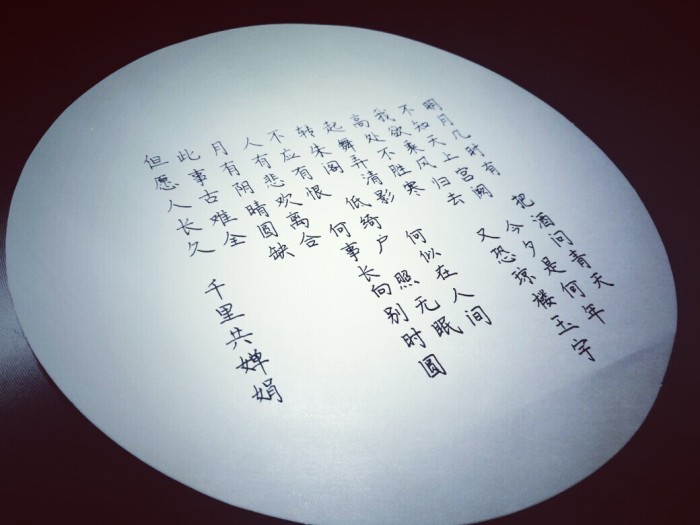 明月几时有 把酒问青天
不知天上宫阙 今夕是何年
我欲乘风归去 又恐琼楼玉宇
高处不胜寒
起舞弄清影 何似在人间
转朱阁 低绮户 照无眠
不应有恨 何事长向别时圆
人有悲欢离合
月有阴晴圆缺
此事古难全
但愿人长久 千里共婵娟